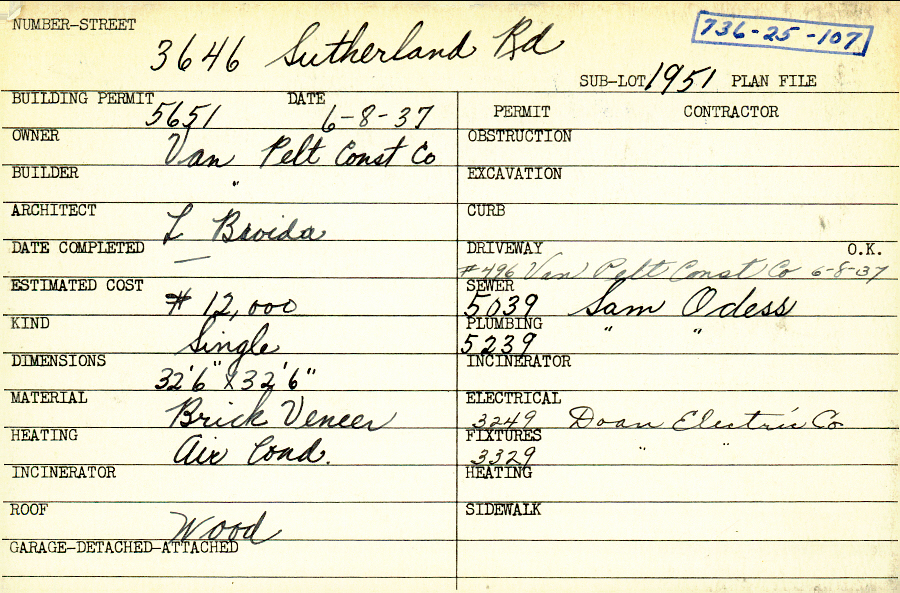 NUMBER-STREET
736-25-107
3646 Sutherland Rd
SUB-LOT 1951 PLAN FILE
BUILDING PERMIT 5651 DATE 6-8-37
OWNER Van Pelt Const Co
BUILDER "
ARCHITECT L Bavida
DATE COMPLETED —
ESTIMATED COST # 12,000
KIND Single
DIMENSIONS 32'6" X 32'6"
MATERIAL Brick Veneer
HEATING Air Cond.
INCINERATOR
ROOF Wood
GARAGE-DETACHED-ATTACHED
PERMIT CONTRACTOR
OBSTRUCTION
EXCAVATION
CURB
DRIVEWAY O.K.
#496 Van Pelt Const Co 6-8-37
SEWER
5039 Sam Odess
PLUMBING
5239 " "
INCINERATOR
ELECTRICAL
3249 Doan Electric Co
FIXTURES
3329 " "
HEATING
SIDEWALK